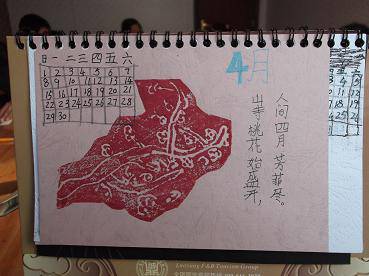 4月
日一二三四五六
1 2 3 4 5 6 7
8 9 10 11 12 13 14
15 16 17 18 19 20 21
22 23 24 25 26 27 28
29 30
人间四月芳菲尽。
山寺桃花始盛开,
F&B Tourism Group